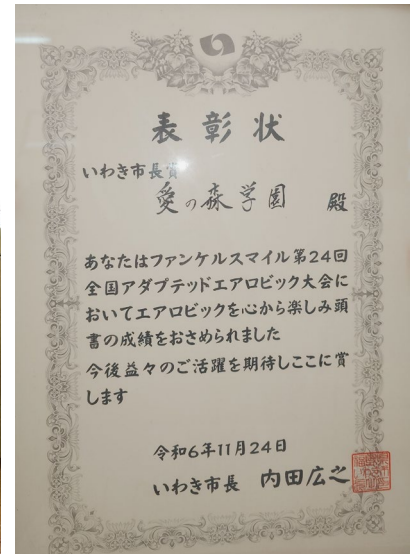 表彰状
いわき市長賞
愛の森学園 殿
あなたはファンケルスマイル第24回
全国アダプテッドエアロビック大会に
おいてエアロビックを心から楽しみ頭
書の成績をおさめられました
今後益々のご活躍を期待しここに賞
します
令和6年11月24日
いわき市長 内田広之